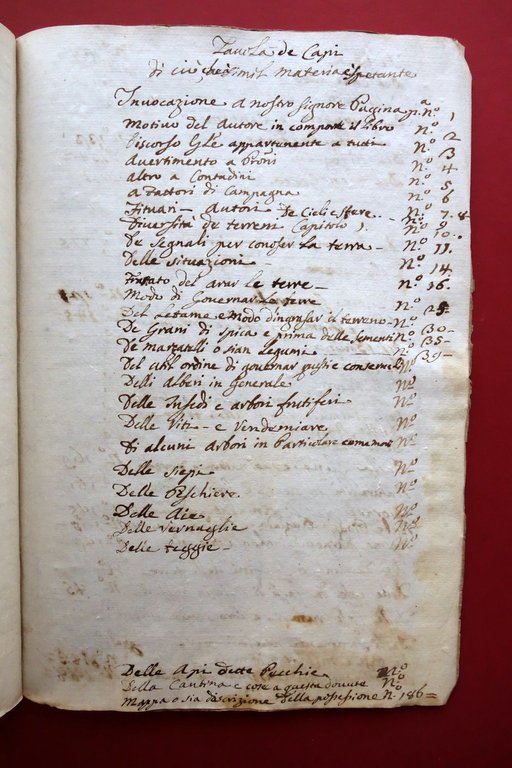 Tavola de Capi
di ciò che à simil materia è spetante
Invocazione a nostro signore Paggina p.ª nº 1
Motivo del Autore in comporre il libro nº 2
Discorso Gle appartenente a tutti nº 3
Avertimento a Proni nº 4
altro a Contadini nº 5
a Fattori di Campagna nº 6
Fituari - autori De Cieli e sfere - nº 7. 8
Diversità de terreni Capitolo 1. nº 10.
De segnali per conoser La terra - nº 11.
Delle situazioni nº 14
Trattato del arar le terre - nº 16.
Modo di Governar Le terre
Del Letame e modo d'ingrasar il terreno - nº 25.
De Grani di spica e prima delle sementi nº 30 -
De marzatelli o sian Legumi nº 35 -
Del ordine di governar e conserva nº 39 -
Delli Alberi in Generale nº
Delle Insedi e arbori frutiferi nº
Delle Viti - e Vendemiare nº
Di alcuni Arbori in Particolare come mori nº
Delle siepi nº
Delle Peschiere nº
Delle Aie nº
Delle Vernaglie nº
Delle teggie - nº
Delle Api dette Pecchie nº
Della Cantina e cose a questa dovute nº
Mappa o sia discrizione Della possesione nº 186 =